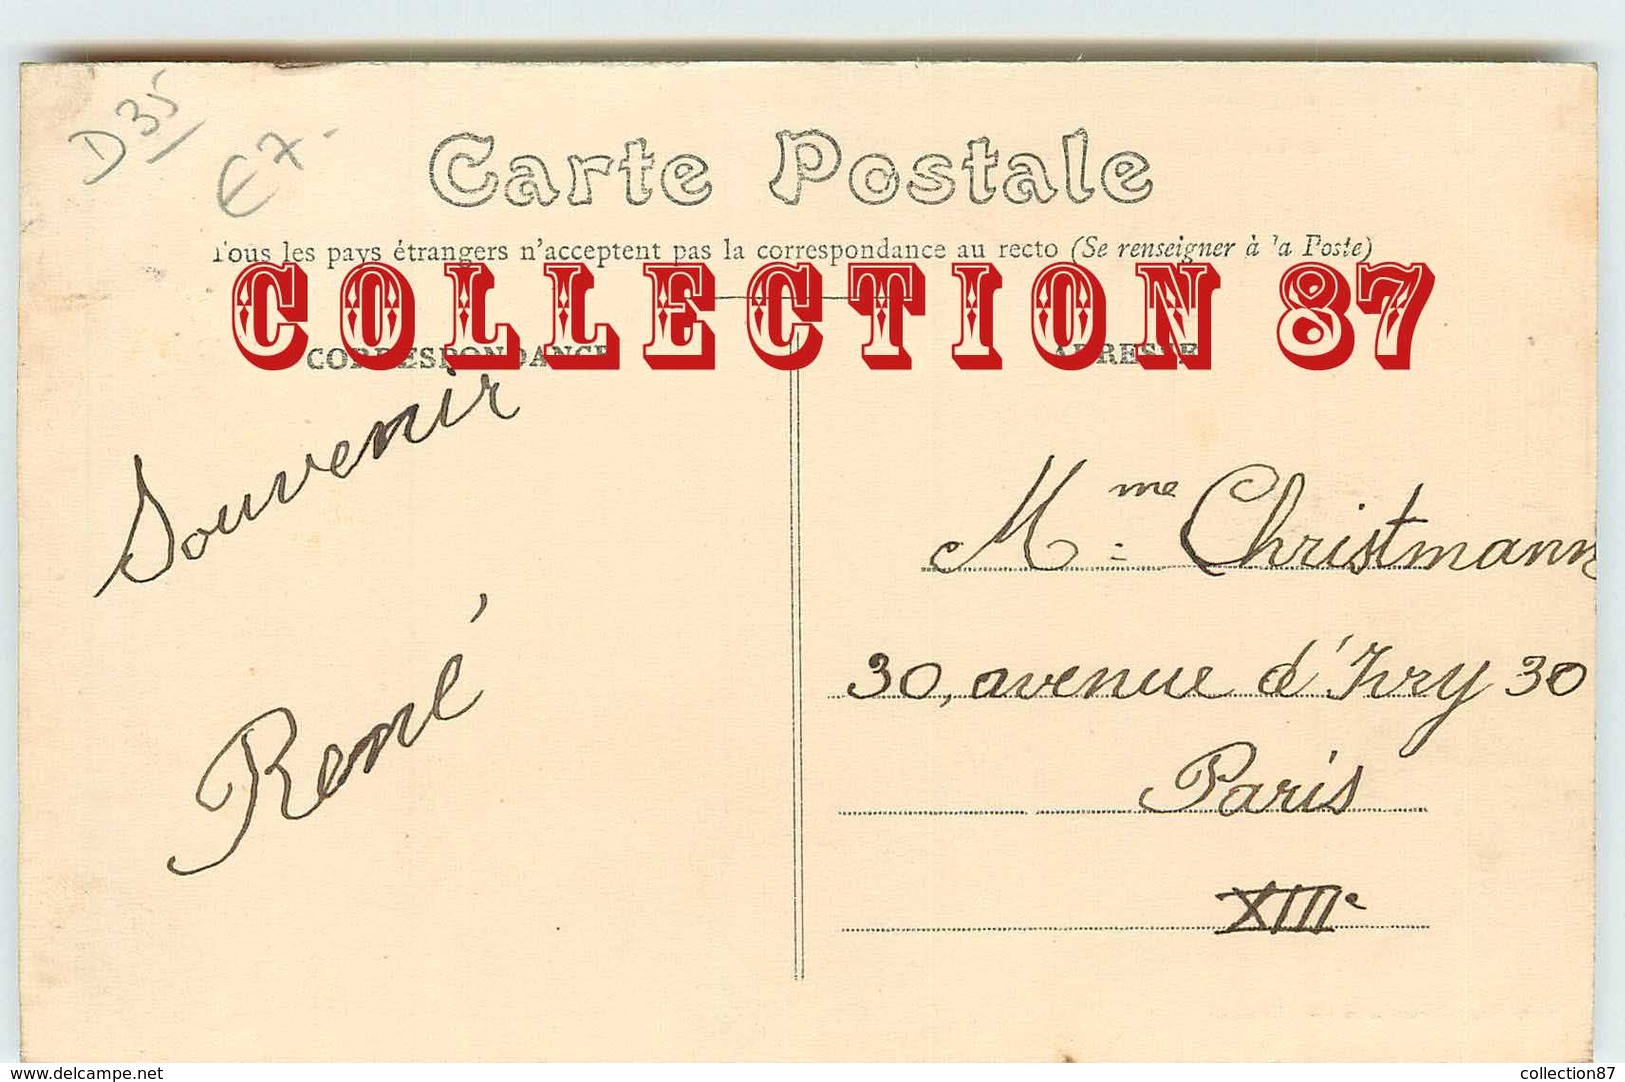 D35
E7-
Carte Postale
Tous les pays étrangers n'acceptent pas la correspondance au recto (Se renseigner à la Poste)
COLLECTION 87
CORRESPONDANCE
ADRESSE
Souvenir
René
Mme Christmann
30, avenue d'Ivry 30
Paris
XIIIe
www.delcampe.net
collection87